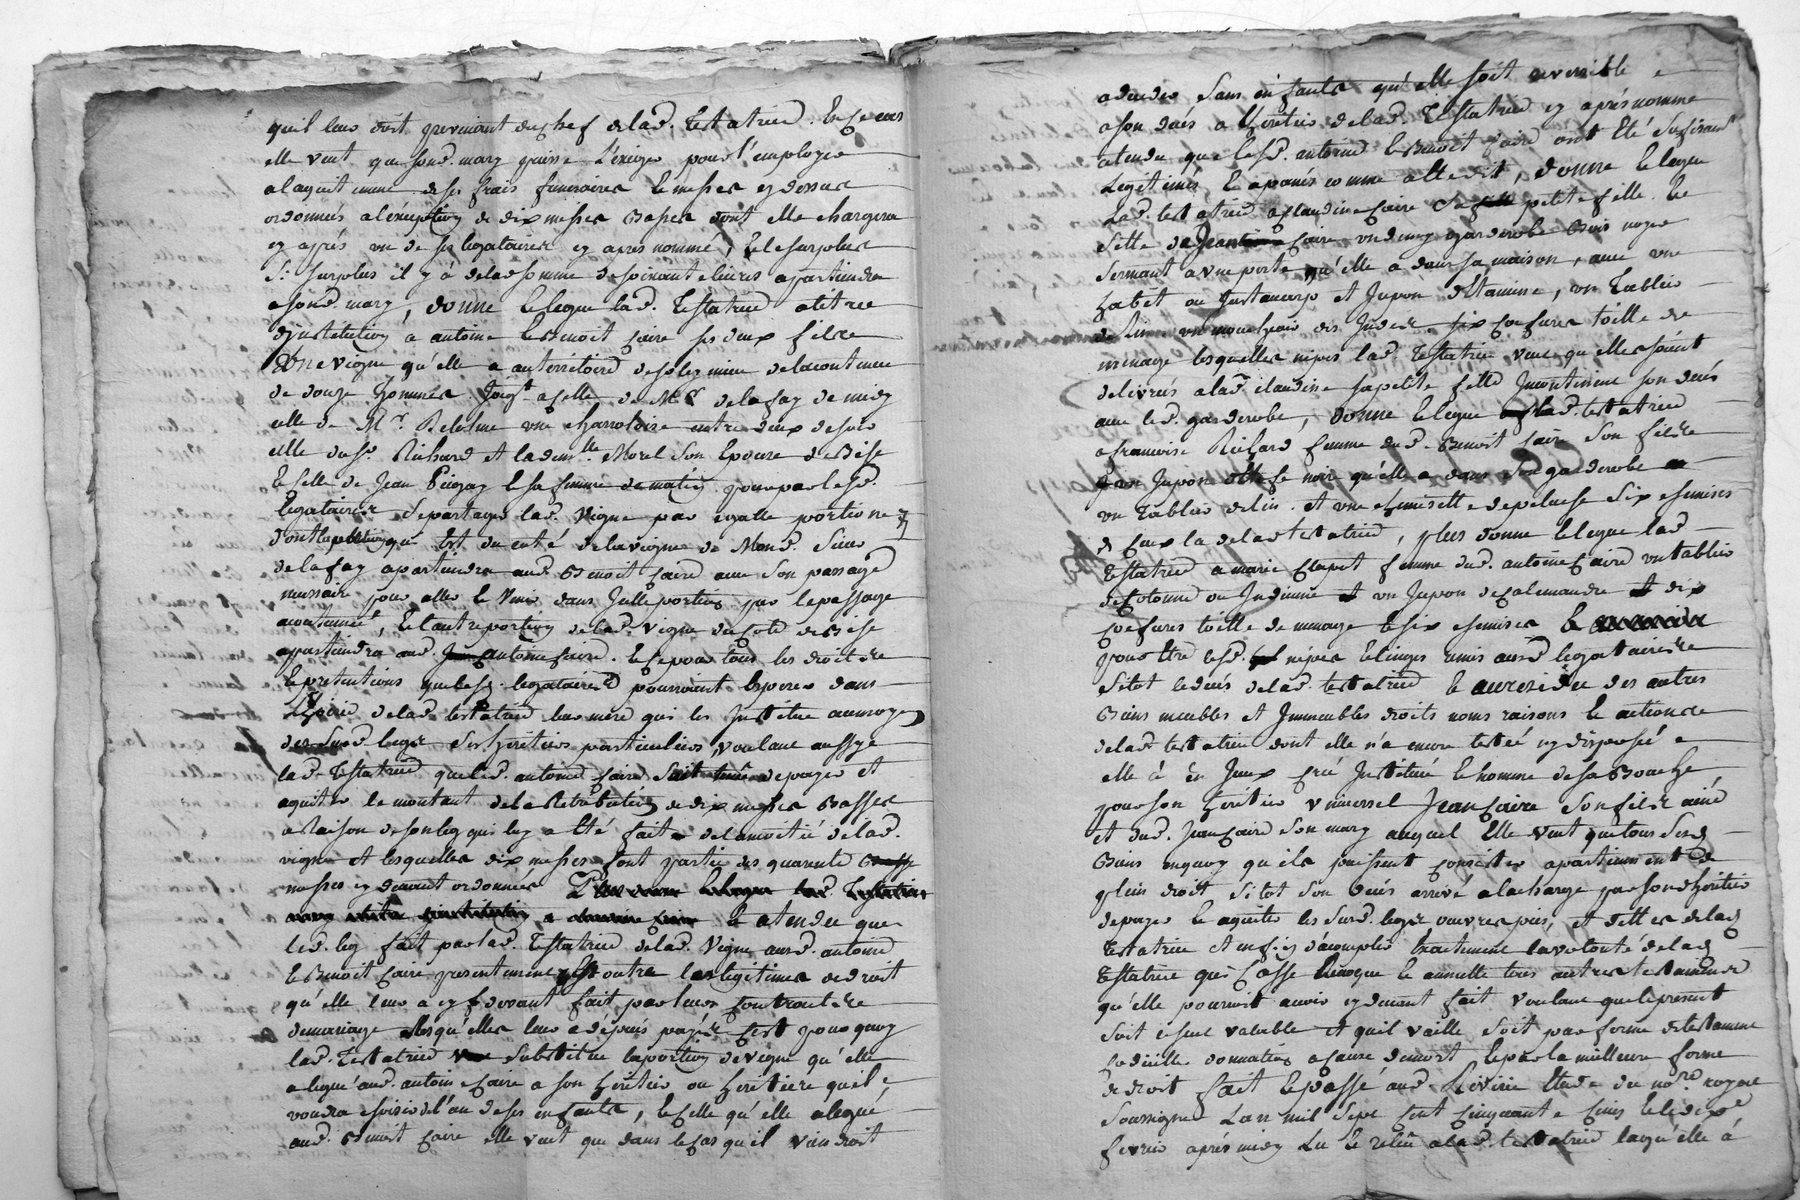 qu'il leur doit provenant du chef de lad. Testatrice. Et ce cas
elle veut que sond. mary puisse l'exiger pour l'employer
a laquittement de ses frais funeraires & messes cy dessus
ordonnées a l'éxception de dix messes basses dont elle chargera
cy aprés un de ses legataires cy apres nommé, & le surplus
si surplus il y à de lad somme de soixante livres apartiendra
a sond. mary, donne & legue lad. Testatrice a titre
d'institution a antoine & Benoit faire ses deux fils
une vigne qu'elle a au térritoire de de la contenue
de douze hommes Joigt. a celle de Mr delafay de midy
celle de Mr. Delolme une charrotoire entre deux de soir
celle du sr. Richard et la demlle. Morel son Epouse de Bise
& celle de Jean & sa femme de matin pour par lesd.
legataires se partager lad. vigne par egalle portion
dont la portion qui est du coté de la vigne de Mond. Sieur
delafay apartiendra aud. Benoit faire avec son passage
necessaire pour aller & venir dans Jcelle portion par le passage
acoutumé, & l'autre portion de lad. vigne du coté de Bise
appartiendra aud. antoine faire. & ce pour tous les droits
& pretentions que lesd. legataires pourroient esperer dans
l'hoirie de lad. testatrice leur mere qui les Jnstitue au moyen
des susd. legs ses heritiers particuliers, voulant aussy
lad. Testatrice que led. antoine faire soit tenu de payer et
aquitter le montant de la Retribution de dix messes Basses
a Raison de son leg qui luy a été fait de la moitié de lad.
vigne et lesquelles dix messes font partie des quarente
messes cy devant ordonnées & atendu que
led. leg fait par lad. Testatrice de lad. vigne ausd. antoine
& Benoit faire presentement est outre les legitimes de droit
qu'elle leur a cy devant fait par leurs contract de
mariage & qu'elles leur a dépuis payés c'est pourquoy
lad. Testatrice substitue la portion de vigne qu'elle
a legué aud. antoine faire a son héritier ou héritiere qu'il
voudra choisir de l'un de ses enfants, & celle qu'elle a legué
aud. Benoit faire elle veut que dans le cas qu'il viendroit
a deceder sans enfants qu'elle soit reversible
a son deces a l'héritier de lad. Testatrice cy aprés nommé
atendu que lesd. antoine & Benoit faire ont été sufisamt
Legitimés & apanés comme elle dit, donne & legue
Lad. testatrice a claudine faire sa petite fille &
fille de Jean faire un garderobe Bois noyer
fermant a une porte qu'elle a dans sa maison, avec une
habit ou Justaucorps et Jupon d'étamine, un tablier
de lin un mouchoir des Jndes, six coefures toille de
menage lesquelles nipes lad. Testatrice veut qu'elles soint
delivrés a lad. claudine sa petite fille Jncontinent son décés
avec led. garderobe, donne & legue lad. testatrice
a francoise Richard femme dud. Benoit faire son fils
un Jupon noir qu'elle a dans son garderobe
un tablier de lin et une chemisette de peluche six chemises
de ceux la de lad testatrice, plus donne & legue lad
Testatrice a marie clapet femme dud. antoine faire un tablier
de cotonne ou Jndienne et un Jupon de calemandre et dix
coefures toille de menage & six chemises &
pour être lesd. nipes & linges remis ausd. legataires
sitot le decés de lad. testatrice & au residu des autres
Biens meubles et Jmmeubles droits noms raisons & actions
de lad testatrice dont elle n'a encore testé ny disposé
elle a en Jceux créé Jnstitué & nommé de sa Bouche
pour son héritier universel Jean faire son fils ainé
et dud. Jean faire son mary auquel elle veut que tous sesd.
Biens en quoy qu'ils puissent consister apartiennent de
plein droit sitot son decés arrivé a la charge par sond héritier
de payer & aquitter les susd. legs œuvres pies, et dettes de lad
Testatrice et enfin d'acomplir exactement la volonté de lad
Testatrice qui Casse Revoque & annulle tous autres testaments
qu'elle pourroit avoir cy devant fait voulant que le present
soit le seul valable et qu'il vaille soit par forme de testament
codicille donnation a cause de mort & par la meilleure forme
de droit fait & passé aud. étude du nore. royal
soussigné L'an mil sept cent cinquante cinq & le dix
fevrier aprés midy Lu & relu a lad. testatrice laquelle à